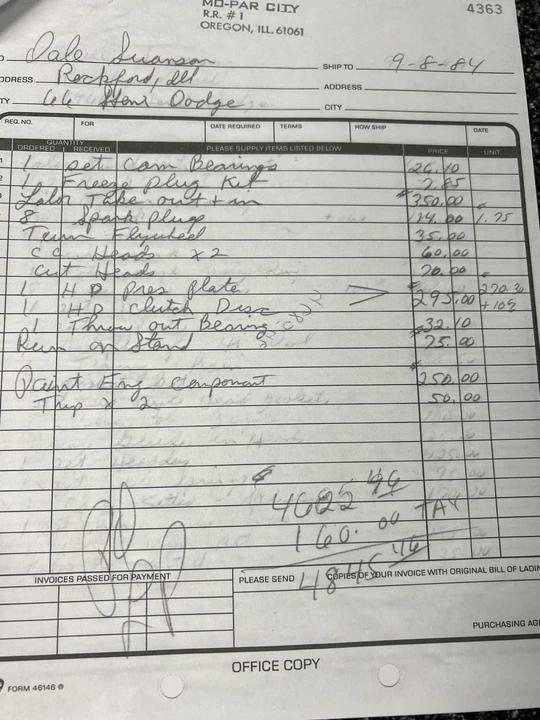 MO-PAR CITY
R.R. # 1
OREGON, ILL. 61061
4363
Dale Swanson
SHIP TO 9-8-84
ADDRESS Rockford, Ill
ADDRESS
66 Hemi Dodge
CITY
REQ. NO. FOR DATE REQUIRED TERMS HOW SHIP DATE
QUANTITY
ORDERED RECEIVED PLEASE SUPPLY ITEMS LISTED BELOW PRICE UNIT
1 set Cam Bearings 26.10
1 Freeze Plug Kit 7.85
Labor Take out + in $350.00
8 Spark plugs 14.00 1.75
Turn Flywheel 35.00
cc Heads x 2 60.00
Cut Heads 70.00
1 HD pres plate
1 HD clutch Disc $295.00 270.30 + 10%
1 Throw out Bearing $32.10
Run on Stand 75.00
Paint Eng Component $250.00
Trip x 2 50.00
$
160.00 TAX
INVOICES PASSED FOR PAYMENT
PLEASE SEND COPIES OF YOUR INVOICE WITH ORIGINAL BILL OF LADIN
PURCHASING AG
OFFICE COPY
FORM 46146